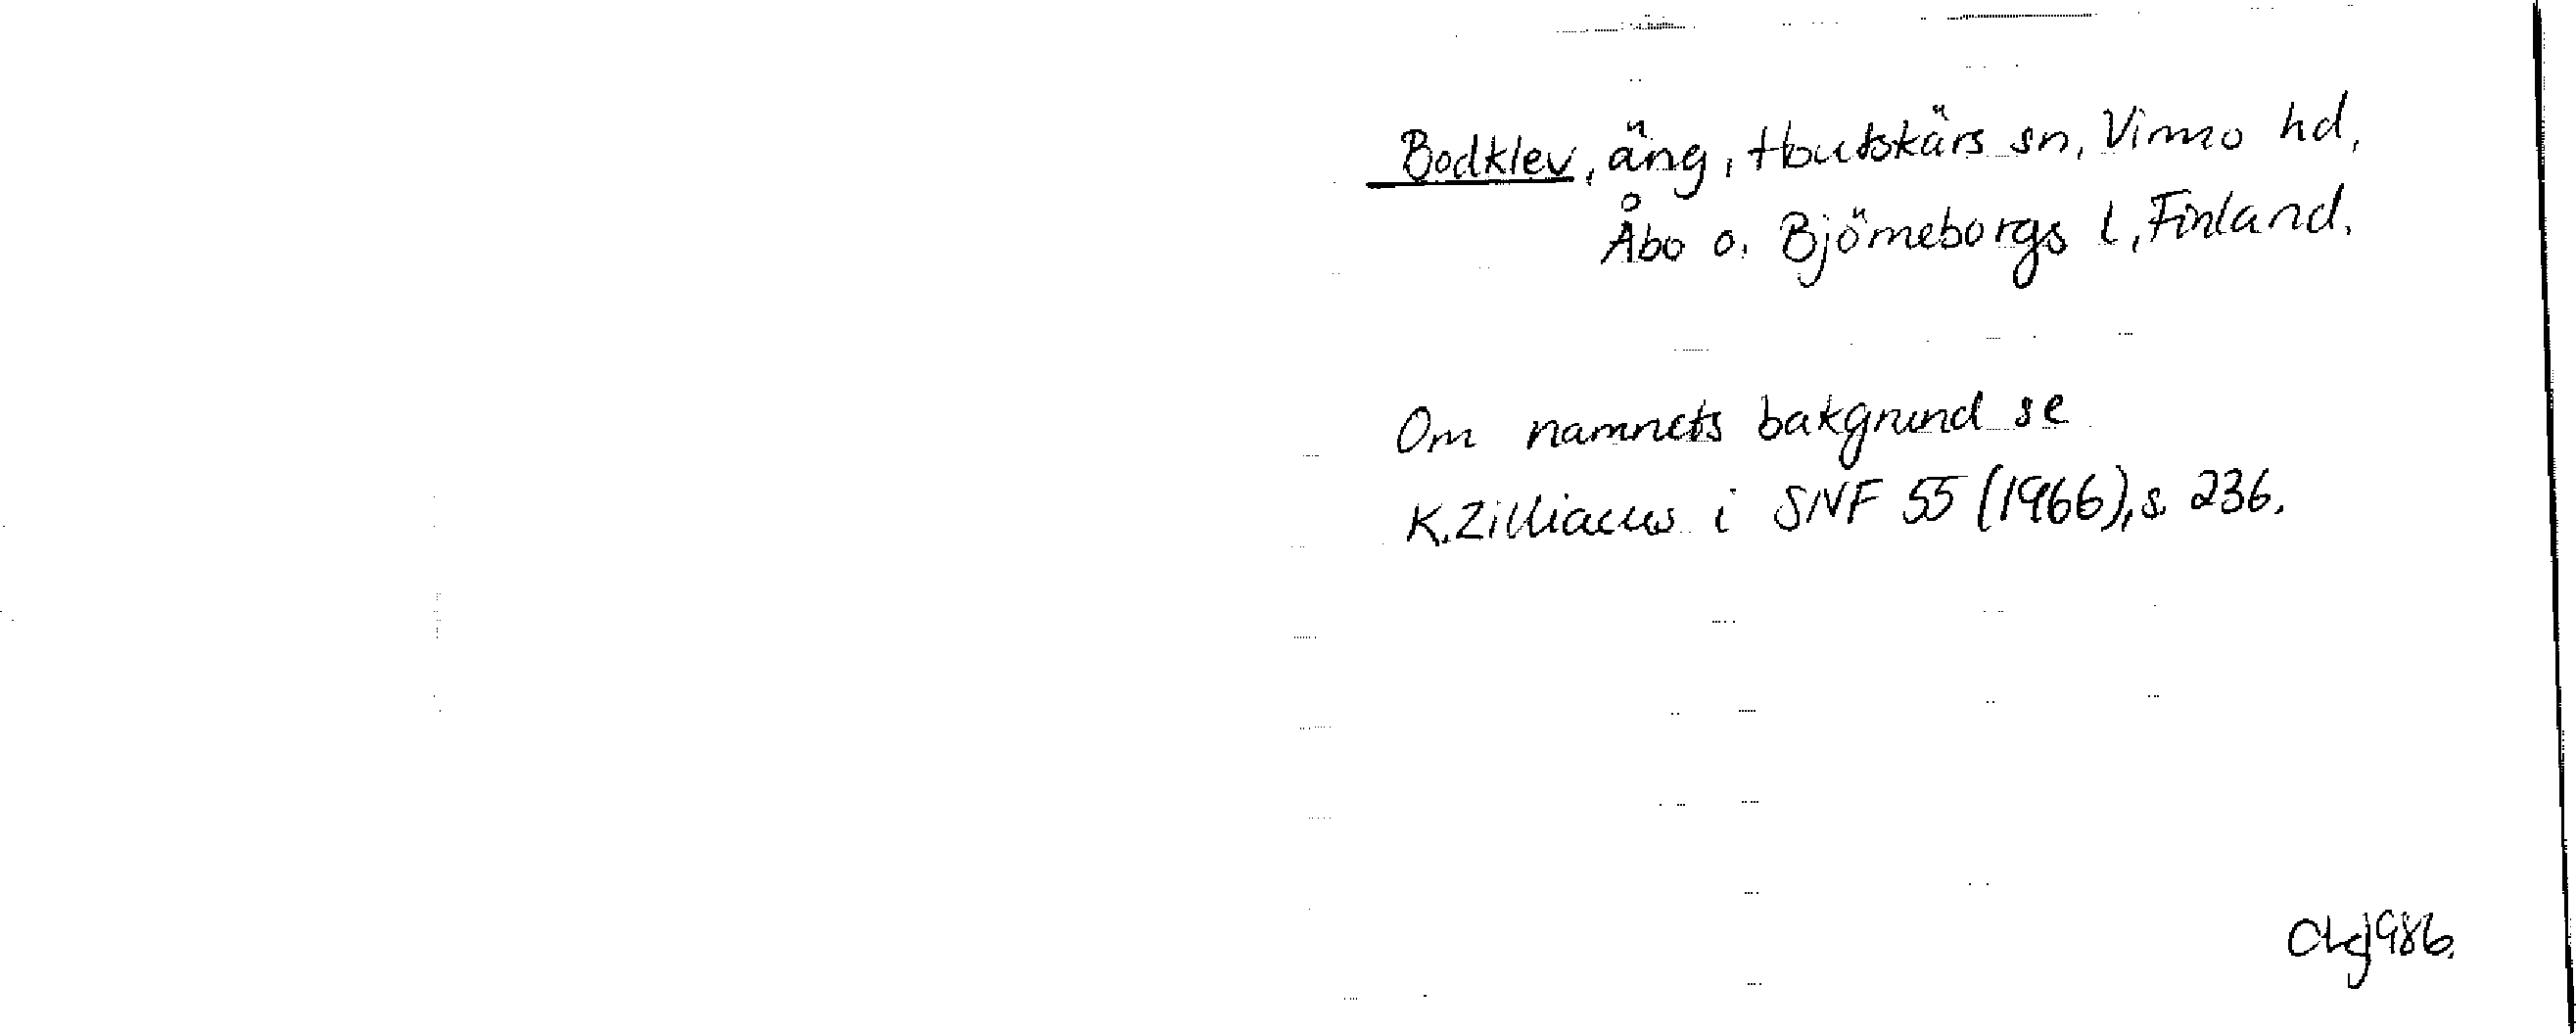 Bodklev, äng, Houtskärs sn, Virmo hd,
Åbo o. Björneborgs l, Finland.
Om namnets bakgrund se
K. Zilliacus i SNF 55 (1966), s. 236.